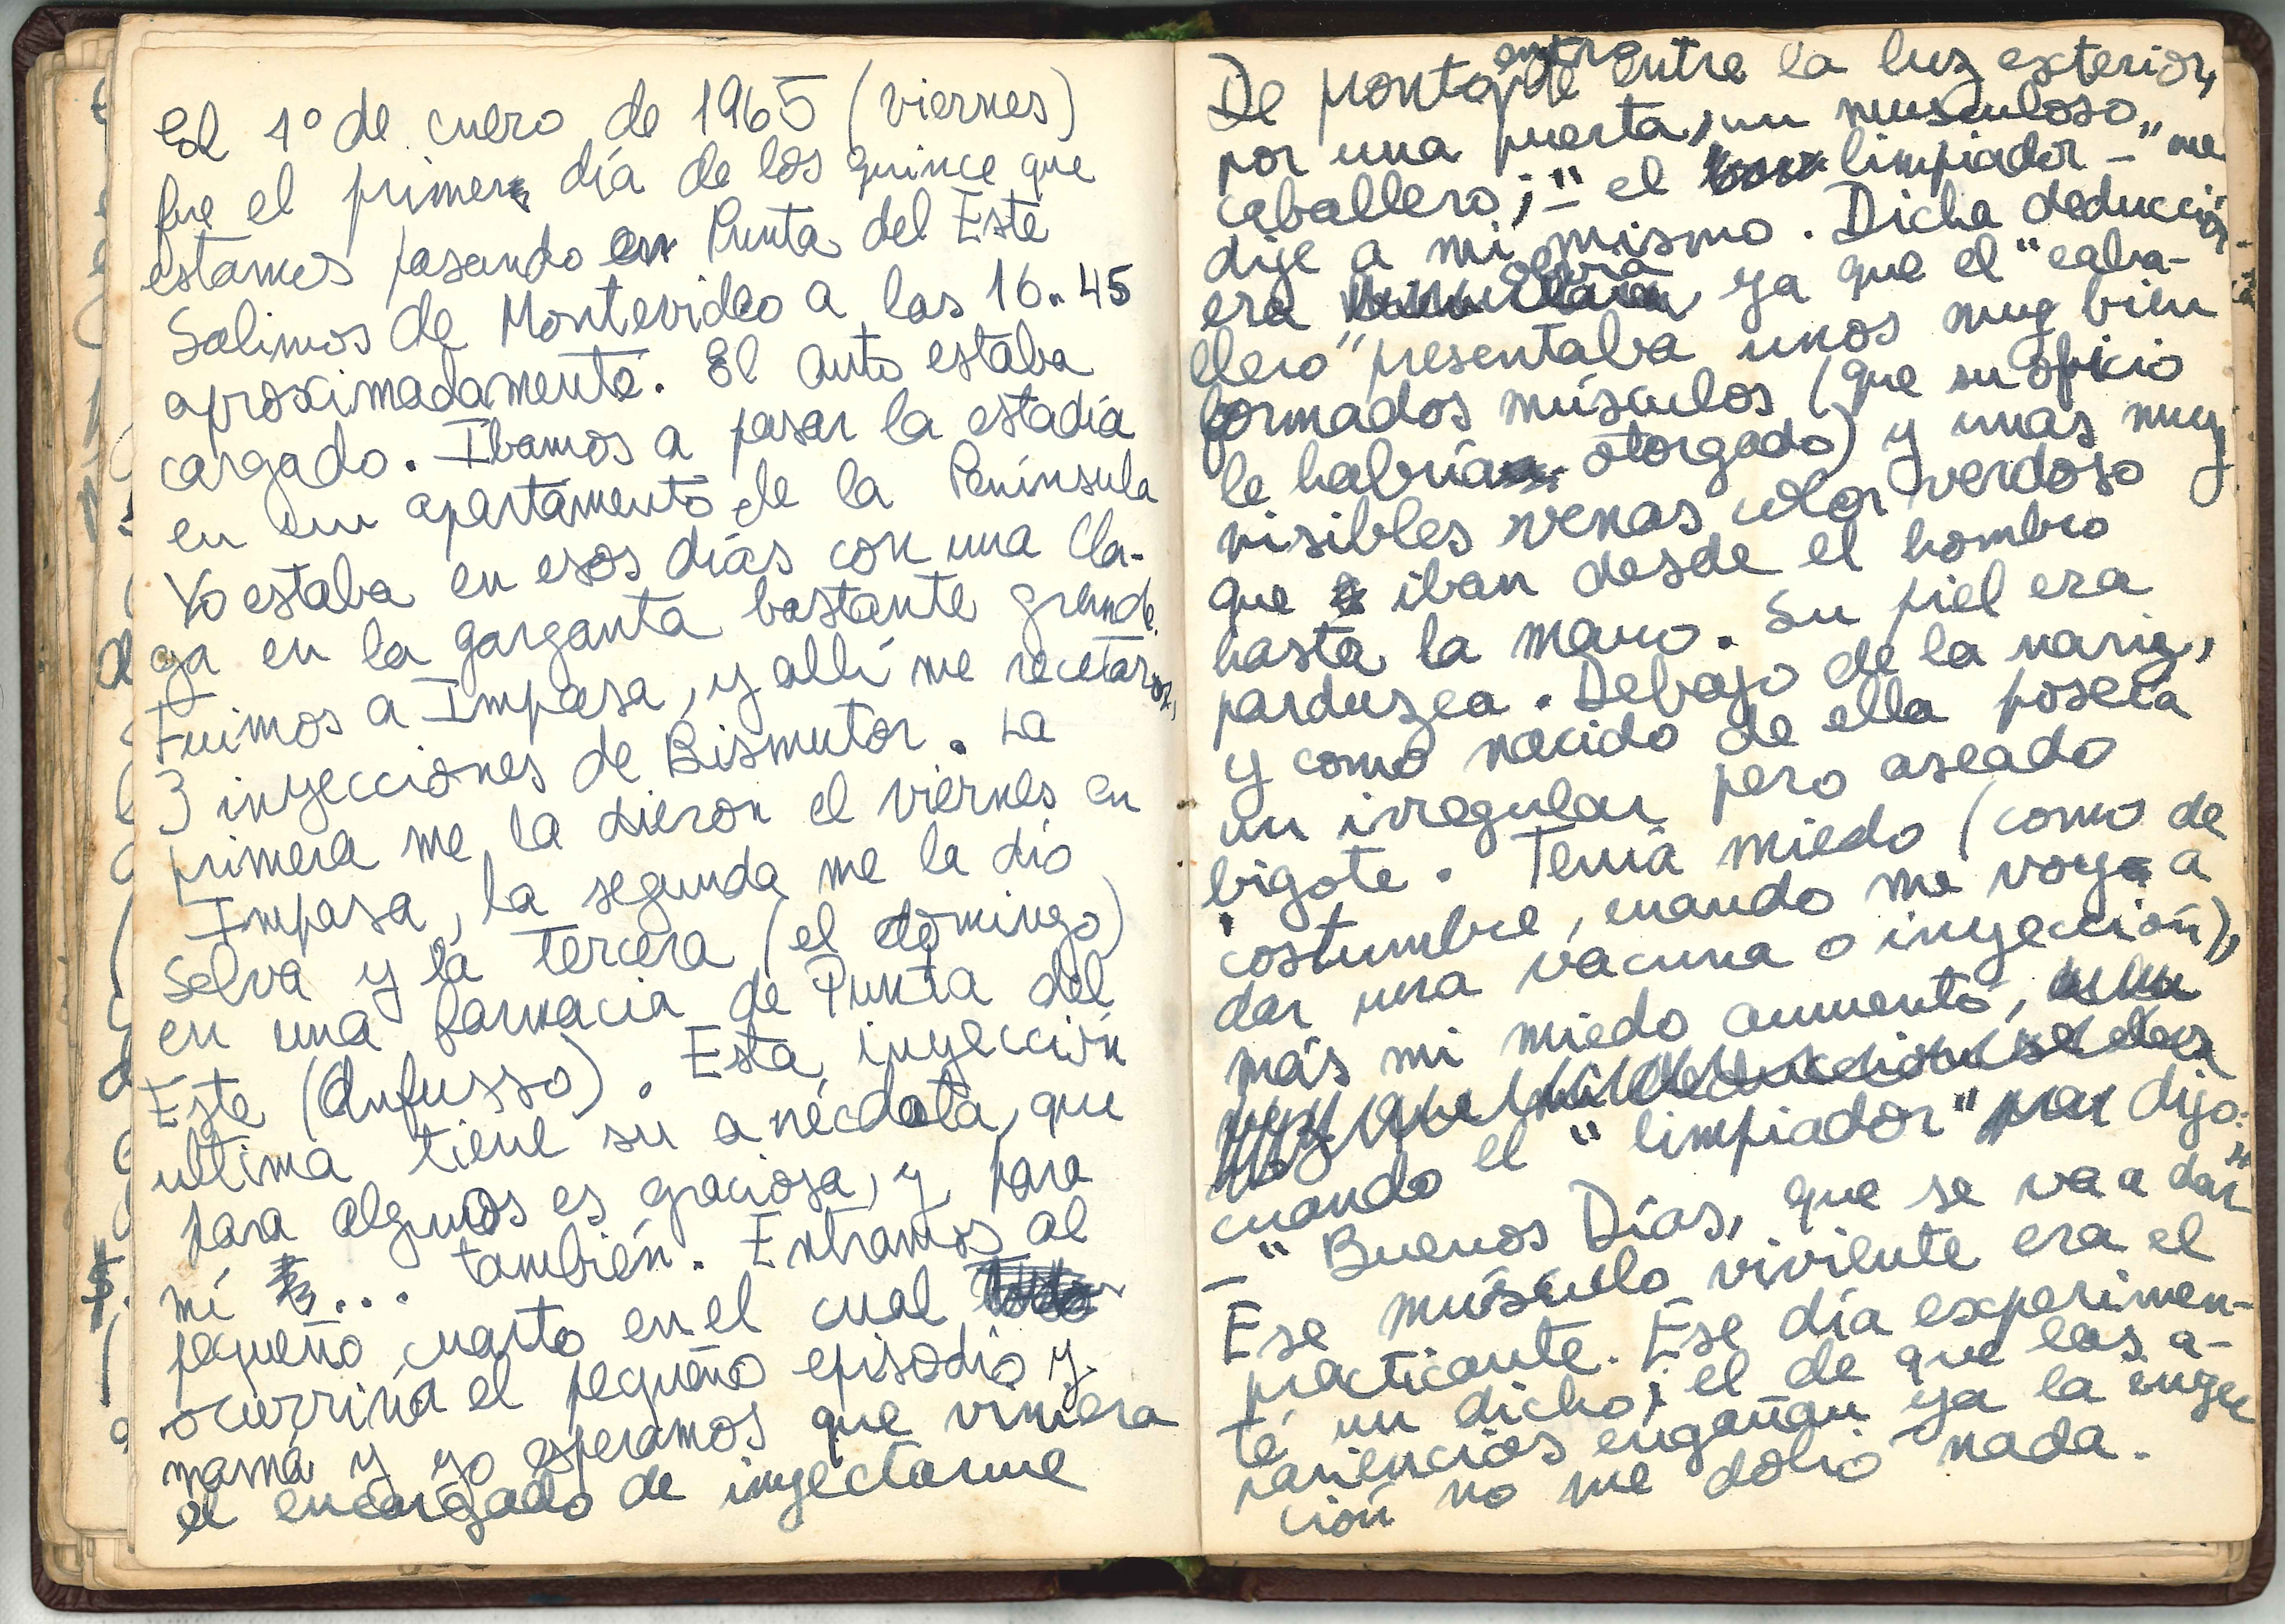 El 1º de enero de 1965 (viernes)
fue el primer día de los quince que
estamos pasando en Punta del Este
Salimos de Montevideo a las 16.45
aproximadamente. El auto estaba
cargado. Ibamos a pasar la estadía
en un apartamento de la Península
Yo estaba en esos días con una lla-
ga en la garganta bastante grande.
Fuimos a Impasa, y allí me recetaron,
3 inyecciones de Bismutor. La
primera me la dieron el viernes en
Impasa, la segunda me la dió
Selva y la tercera (el domingo)
en una farmacia de Punta del
Este (Infusso). Esta inyección
ultima tiene su anécdota, que
para algunos es graciosa, y para
mí ... también. Entramos al
pequeño cuarto en el cual
ocurriría el pequeño episodio y
mamá y yo esperamos que viniera
el encargado de inyectarme
De pronto entra entre la luz exterior,
por una puerta, un musculoso
caballero; "- el limpiador -" me
dije a mi mismo. Dicha deducción
era obvia ya que el "caba-
llero" presentaba unos muy bien
formados músculos (que su oficio
le habría otorgado) y unas muy
visibles venas color verdoso
que iban desde el hombro
hasta la mano. Su piel era
parduzca. Debajo de la nariz,
y como nacido de ella poseía
un irregular pero aseado
bigote. Tenía miedo (como de
costumbre, cuando me voy a
dar una vacuna o inyección),
más mi miedo aumentó,
cuando el "limpiador" dijo:
- "Buenos Días, que se va a dar"
Ese músculo viviente era el
practicante. Ese día experimen-
té un dicho; el de que las a-
pariencias engañan ya la inyec
ción no me dolió nada.